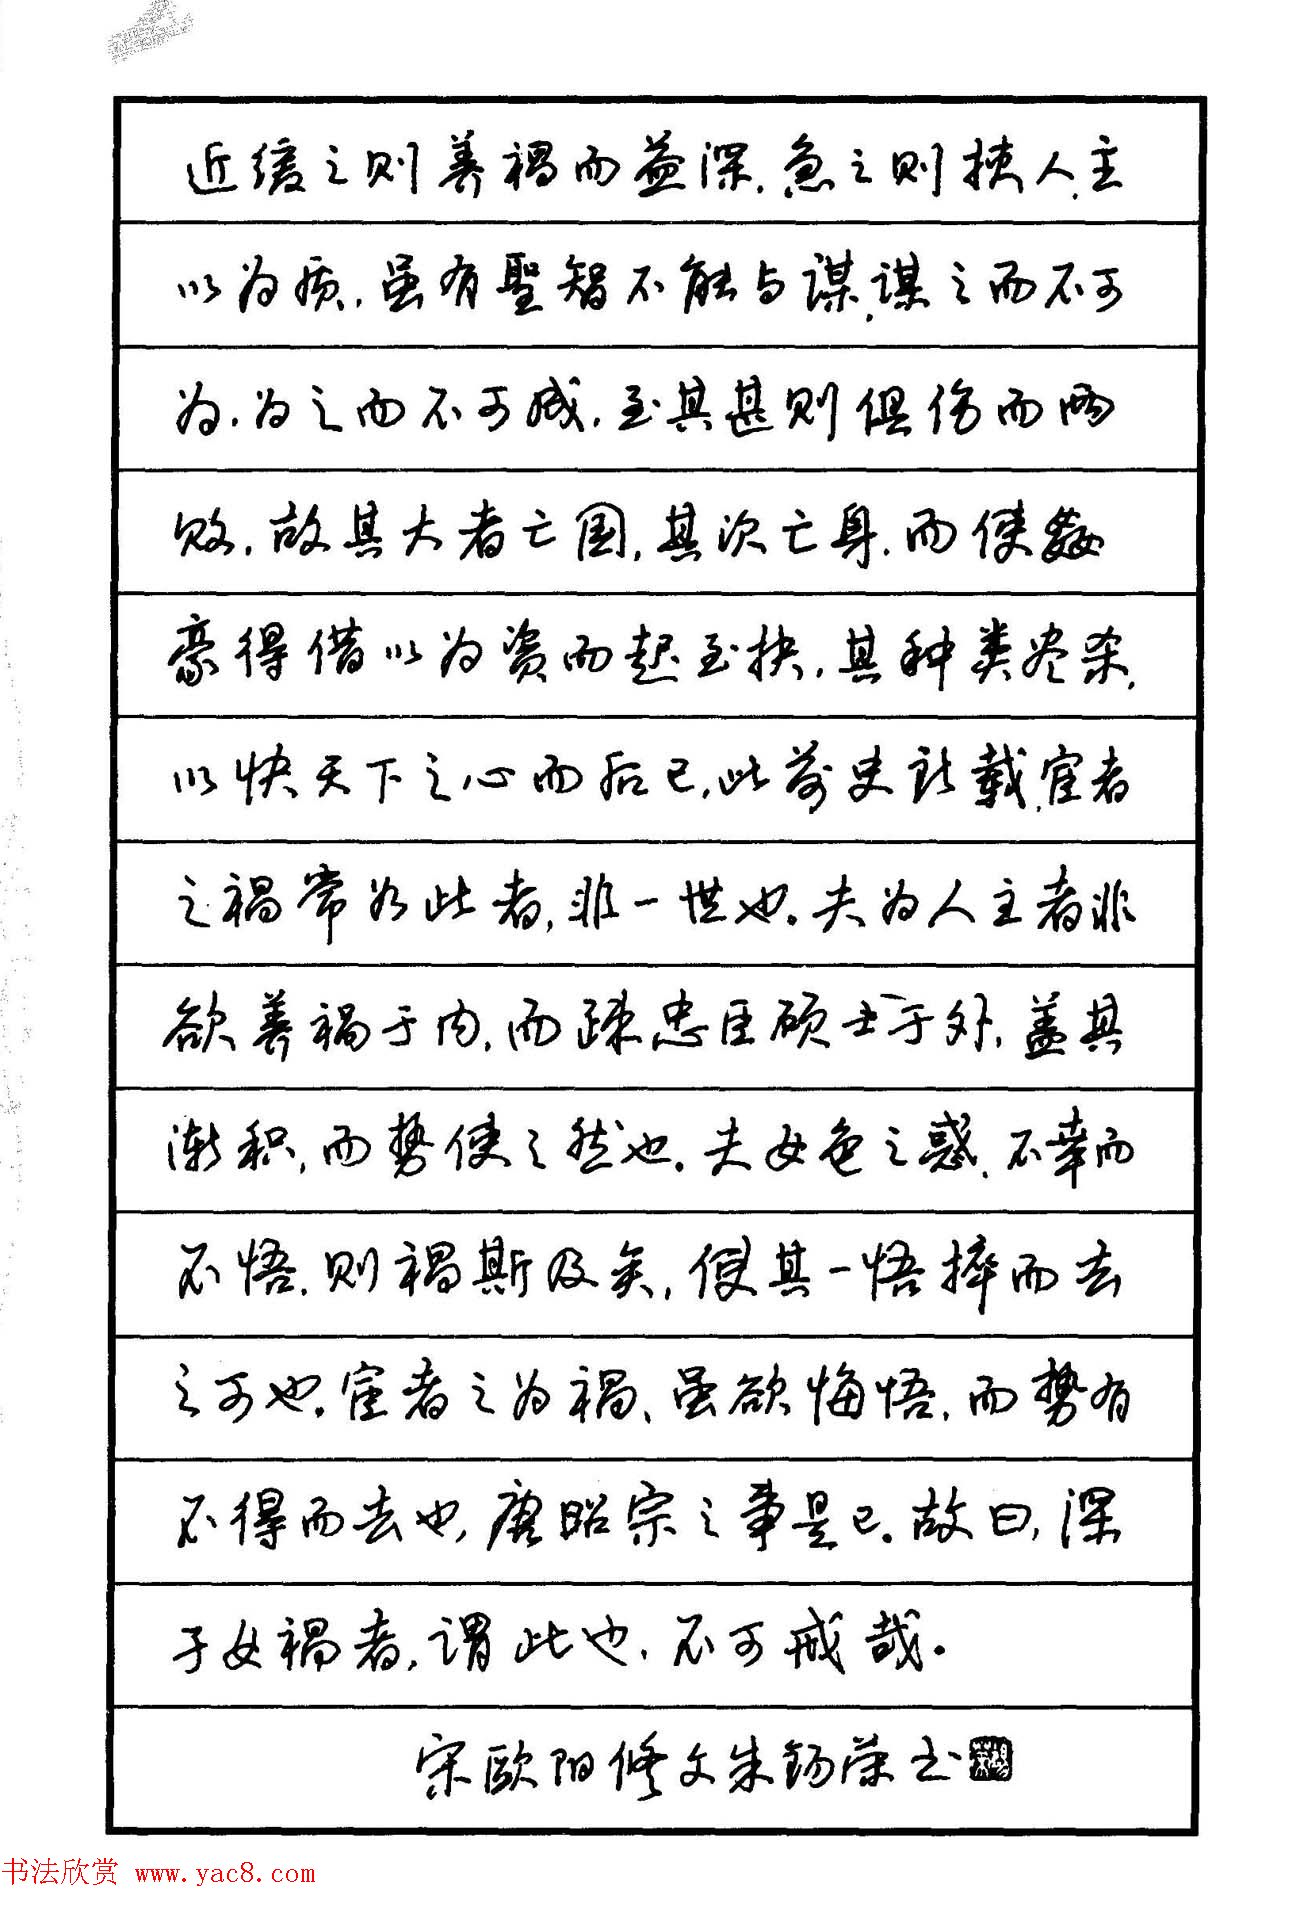 近缓之则养祸而益深，急之则挟人主
以为质，虽有聖智不能与谋，谋之而不可
为，为之而不可成，至其甚则俱伤而两
败，故其大者亡国，其次亡身，而使奸
豪得借以为资而起至抉，其种类尽杀，
以快天下之心而后已，此前史所载，宦者
之祸常如此者，非一世也。夫为人主者非
欲养祸于内，而疎忠臣硕士于外，盖其
渐积，而势使之然也。夫女色之惑，不幸而
不悟，则祸斯及矣，使其一悟捽而去
之可也。宦者之为祸、虽欲悔悟，而势有
不得而去也，唐昭宗之事是已。故曰，深
于女祸者，谓此也，不可戒哉。
宋歐阳修文朱锡荣书
书法欣赏 www.yac8.com